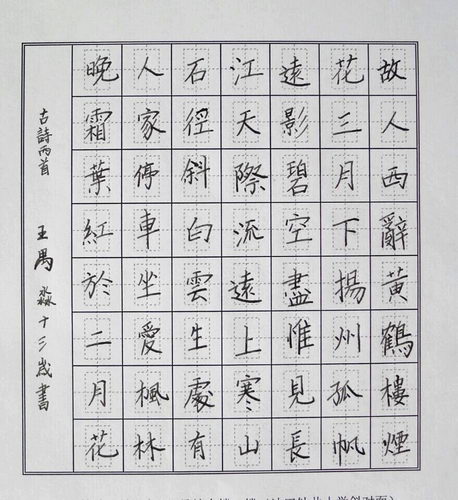 故人西辭黃鶴樓煙
花三月下揚州孤帆
遠影碧空盡惟見長
江天際流遠上寒山
石徑斜白雲生處有
人家停車坐愛楓林
晚霜葉紅於二月花
古詩兩首 王禺淼十三歲書